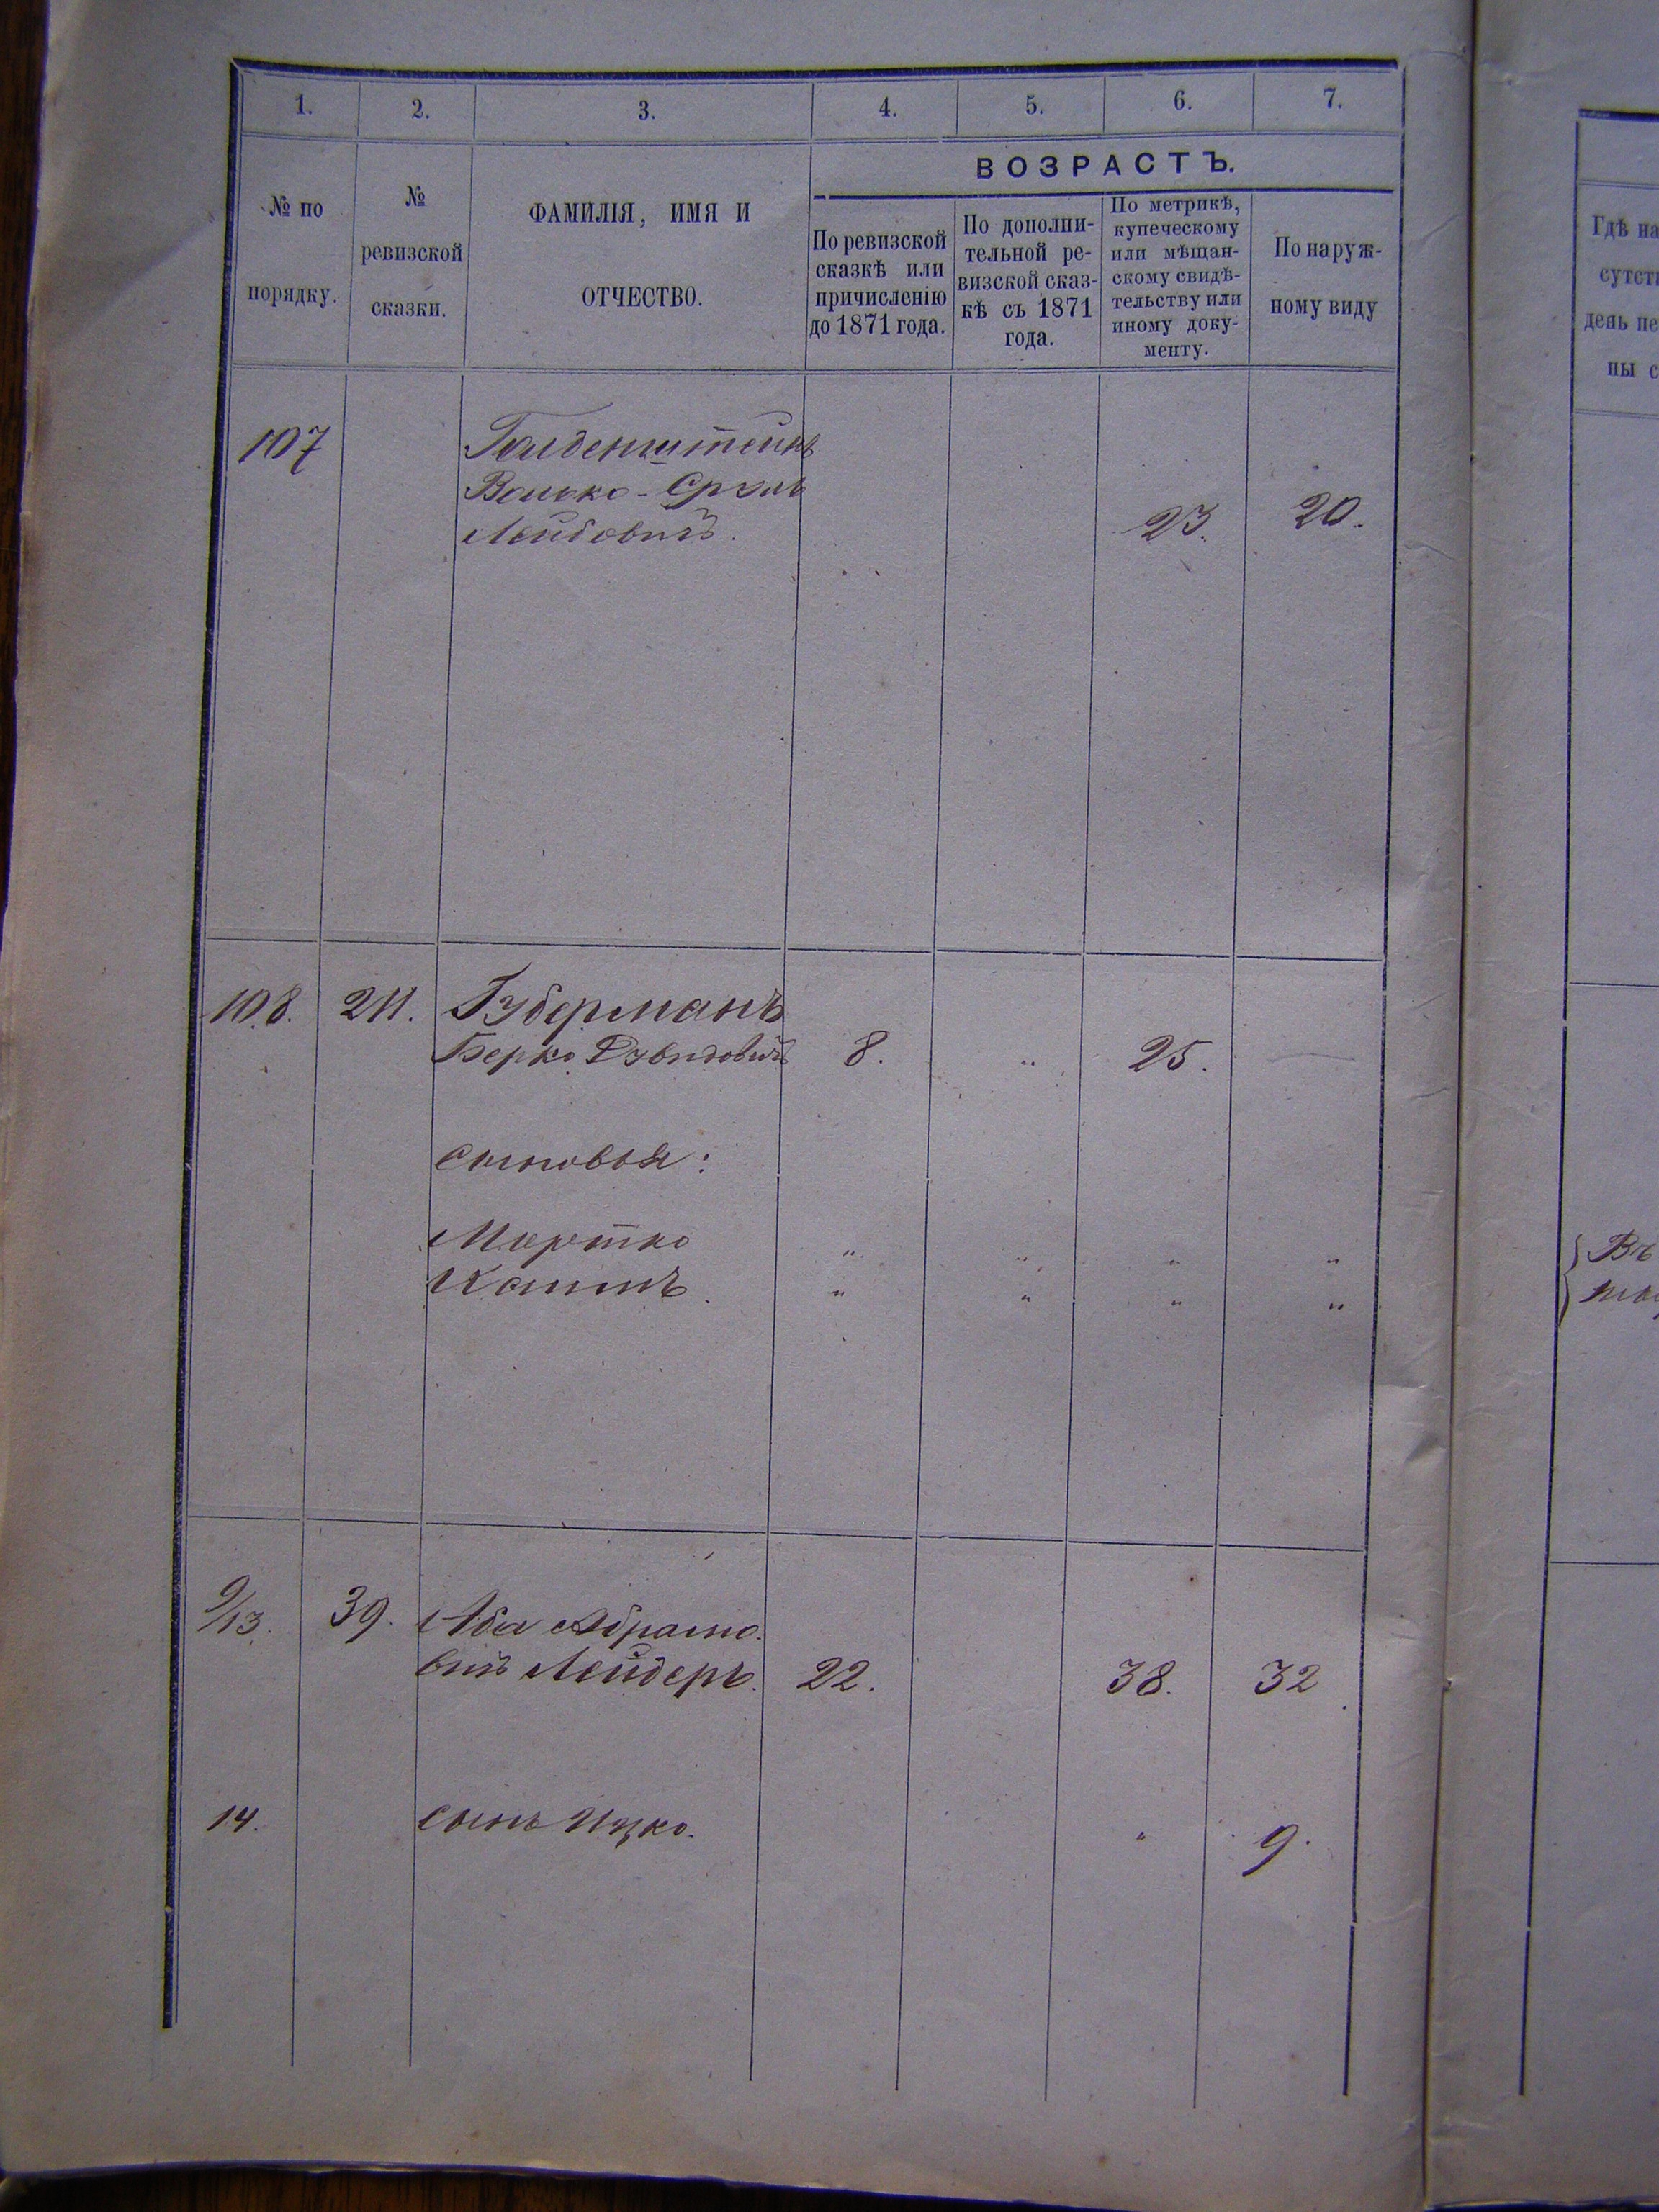 1. 2. 3. 4. 5. 6. 7.
№ по порядку.
№ ревизской сказки.
ФАМИЛІЯ, ИМЯ И ОТЧЕСТВО.
ВОЗРАСТЪ.
По ревизской
сказкѣ или
причисленію
до 1871 года.
По дополни-
тельной ре-
визской сказ-
кѣ съ 1871
года.
По метрикѣ,
купеческому
или мѣщан-
скому свидѣ-
тельству или
иному доку-
менту.
По наруж-
ному виду
107 Голденштейнъ
Волько-Сруль
Лейбовичъ. 23. 20.
108. 211. Губерманъ
Берко Дувидовичъ 8. " 25.
сыновья:
Мортко " " " "
" " " "
9/13. 39. Аба Абрамо-
вичъ Лейдеръ. 22. 38. 32
14. сынъ Ицко. " 9.
Гдѣ на
сутст
день пе
ны с
Въ